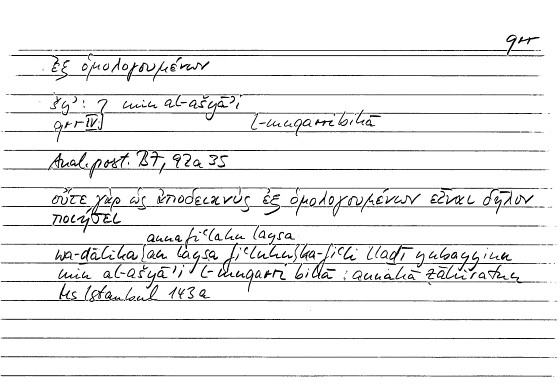 qrr
ἐξ ὁμολογουμένων
šyʾ: 7 min al-ašyāʾi
qrr IV. l-muqarri bihā
Anal. post. B7, 92a35
οὔτε γὰρ ὡς ἀποδεικνὺς ἐξ ὁμολογουμένων εἶναι δῆλον
ποιήσει
anna fiʿlahu laysa
wa-ḏālika {an laysa fiʿluhu} ka-fiʿli llaḏī yubayyinu
min al-ašyāʾi l-muqarri bihā: annahā ẓāhiratun
Ms Istanbul 143a